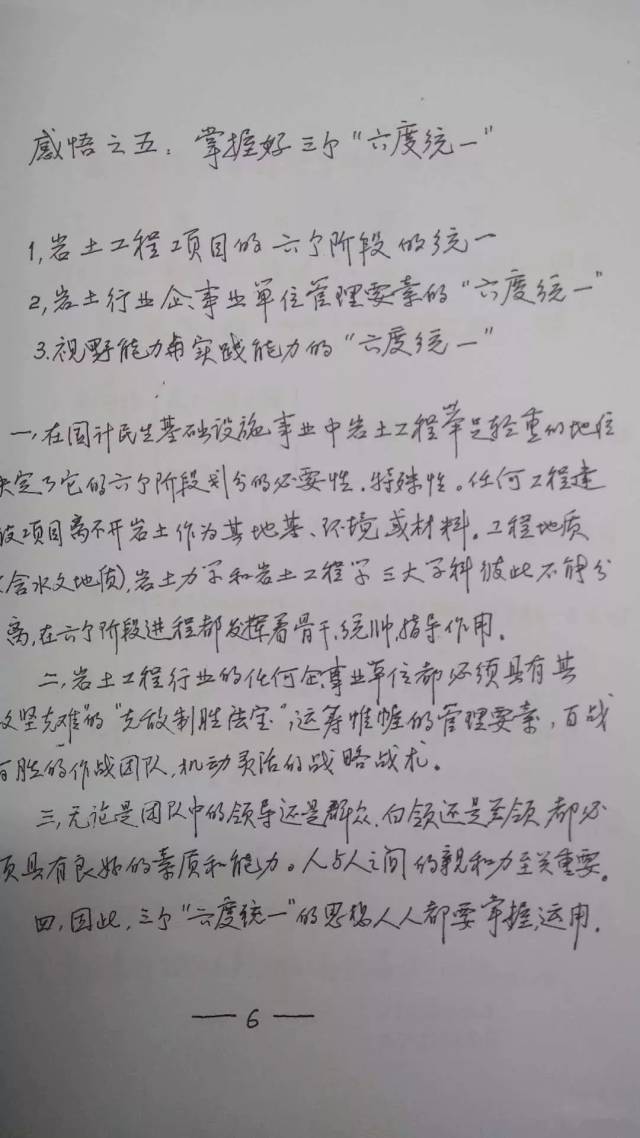 感悟之五：掌握好三个“六度统一”
1,岩土工程项目的六个阶段的统一
2,岩土行业企、事业单位管理要素的“六度统一”
3.视野能力与实践能力的“六度统一”
一,在国计民生基础设施事业中岩土工程举足轻重的地位
决定了它的六个阶段划分的必要性、特殊性。任何工程建
设项目离不开岩土作为其地基、环境或材料。工程地质
(含水文地质),岩土力学和岩土工程学三大学科彼此不能分
离,在六个阶段进程都发挥着骨干、统帅,指导作用。
二,岩土工程行业的任何企、事业单位都必须具有其
攻坚克难”的“克敌制胜法宝”,运筹帷幄的管理要素,百战
百胜的作战团队,机动灵活的战略战术。
三,无论是团队中的领导还是群众、白领还是蓝领都必
须具有良好的素质和能力。人与人之间的亲和力至关重要。
四,因此,三个“六度统一”的思想人人都要掌握,运用。
— 6 —